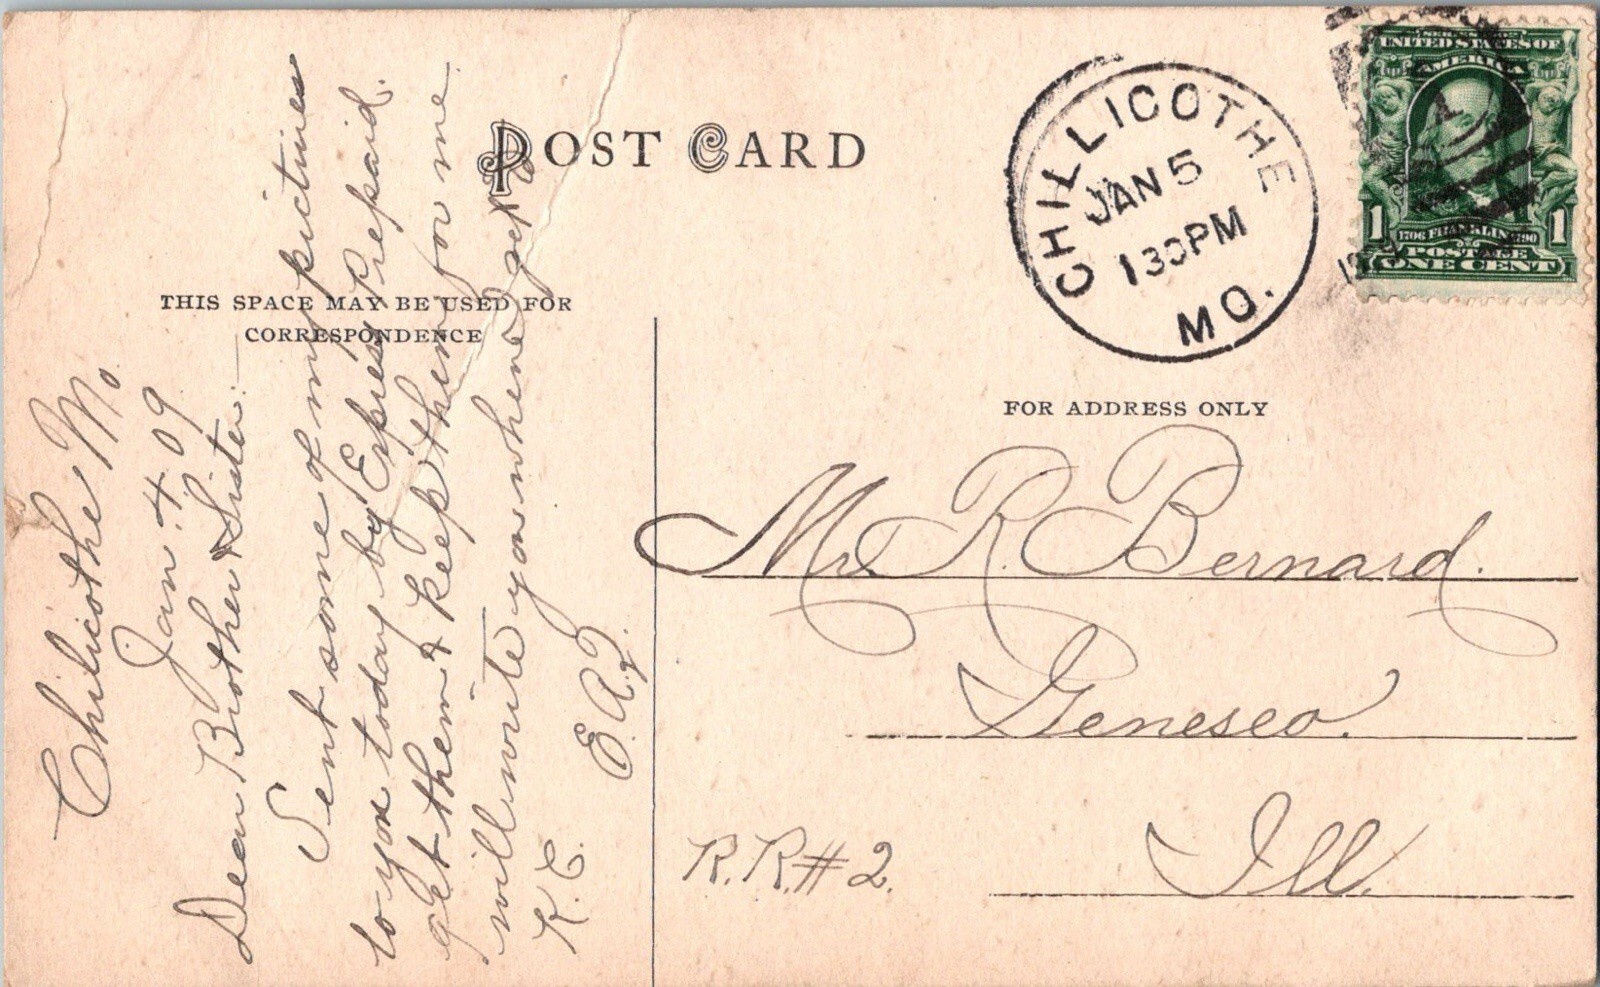 POST CARD
THIS SPACE MAY BE USED FOR
CORRESPONDENCE
Chilicothe Mo.
Jan. 4 09
Dear Brother & Sister:—
Sent some of my pictures
to you today by Expres Prepaid.
get them & keep them for me
will write you when I get to
K. C. E. A. J.
CHILLICOTHE
JAN 5
130PM
MO.
SERIES OF
UNITED STATES OF
AMERICA
1 1706 FRANKLIN 1790 1
POSTAGE
ONE CENT
FOR ADDRESS ONLY
Mr. R. Bernard.
Geneseo.
R.R.#2. Ill.